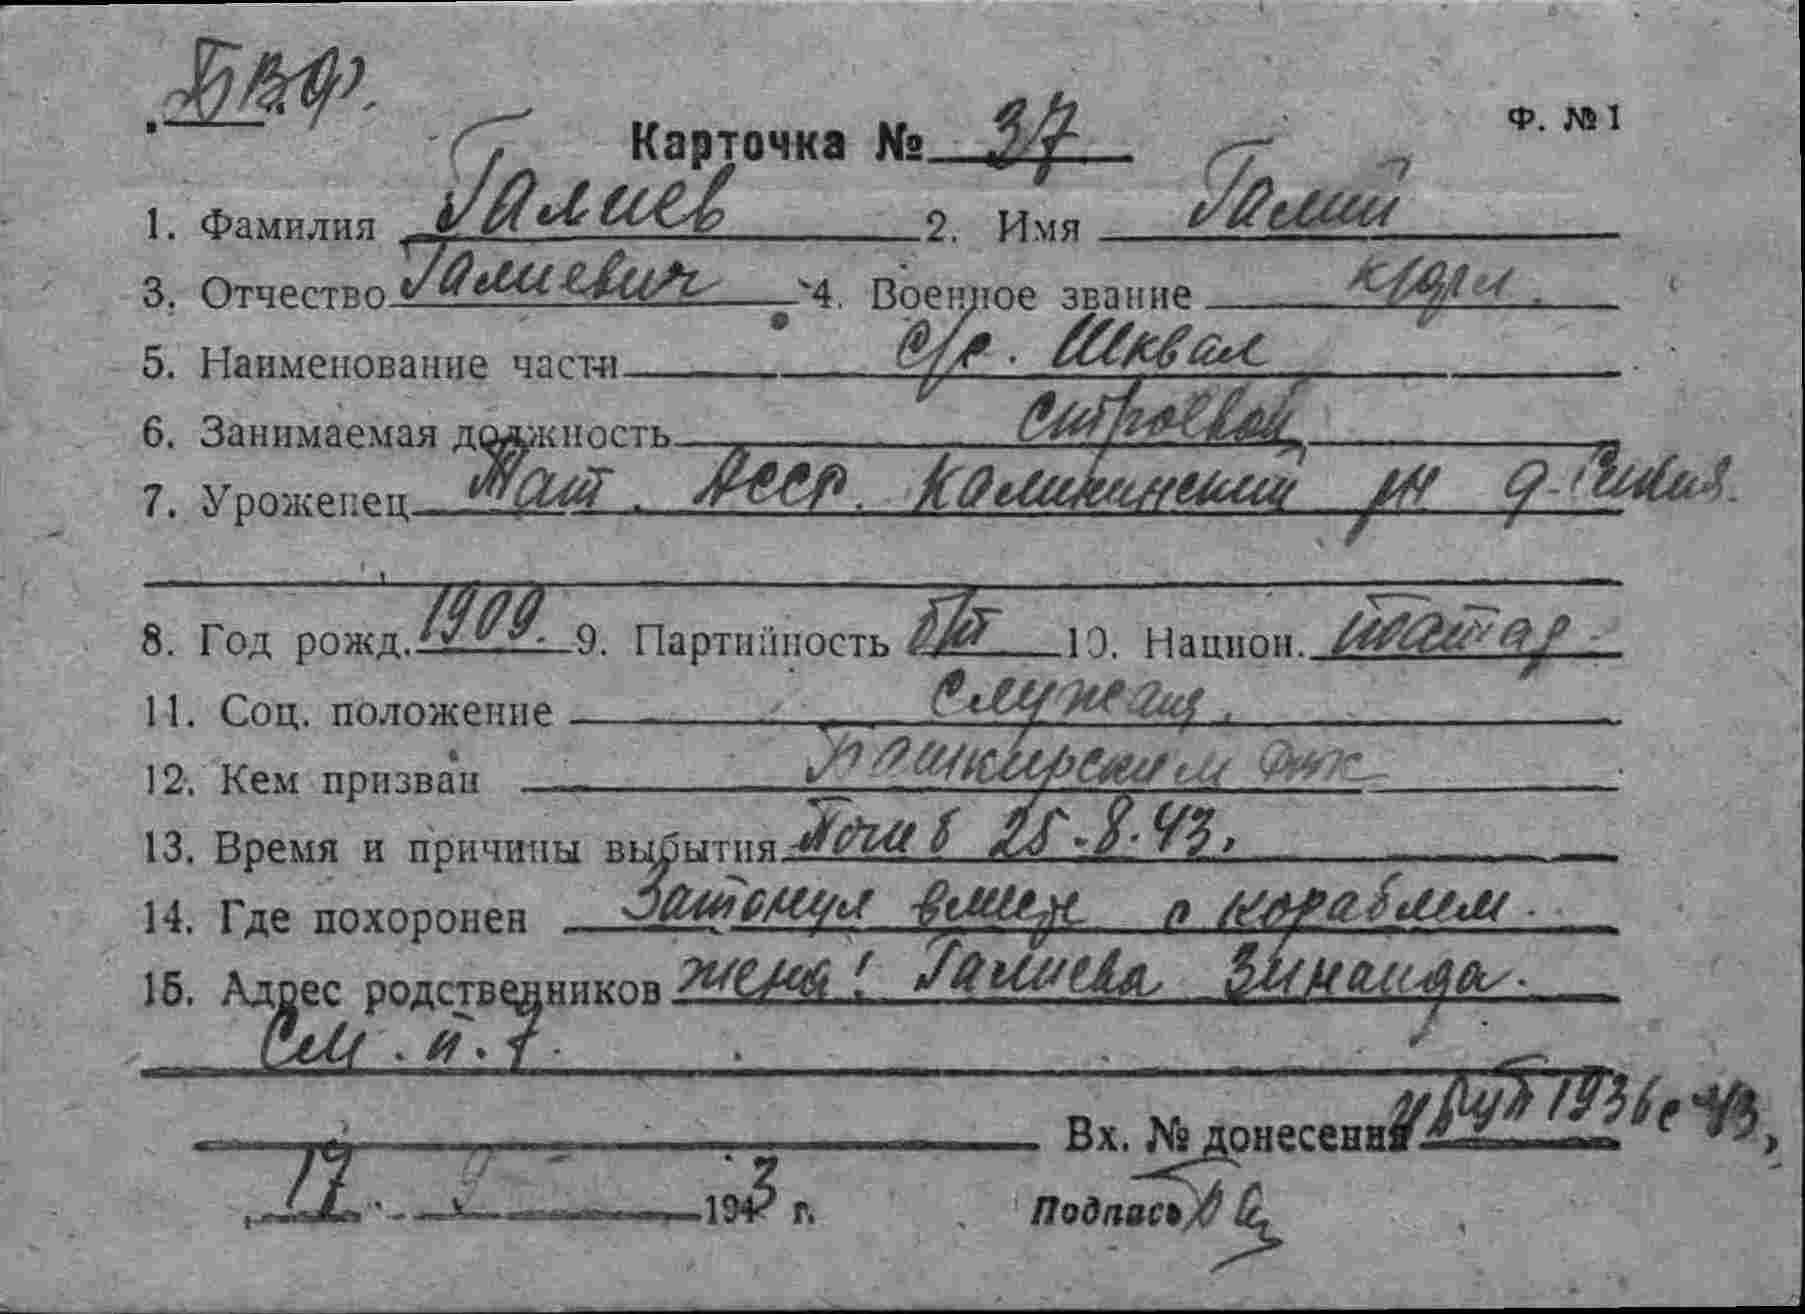 Б.В.Ф.
Ф. № 1
Карточка № 37
1. Фамилия Галиев 2. Имя Галий
3. Отчество Галиевич 4. Военное звание к/фл.
5. Наименование части с/с. Шквал
6. Занимаемая должность строевой
7. Уроженец Тат. АССР. Калининский рн д.
8. Год рожд. 1909. 9. Партийность б/п 10. Национ. татар
11. Соц. положение служащ.
12. Кем призван Башкирским
13. Время и причины выбытия Погиб 25.8.43.
14. Где похоронен Затонул вместе с кораблем.
15. Адрес родственников жена: Галиева Зинаида.
См. п. 7.
Вх. № донесения 1936с 43
17. 9 1943 г. Подпись